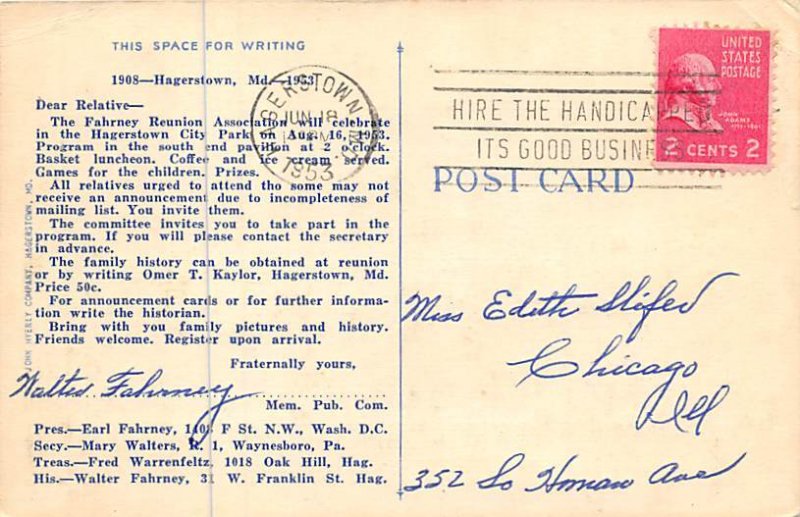 THIS SPACE FOR WRITING
1908—Hagerstown, Md.—1953
Dear Relative—
The Fahrney Reunion Association will celebrate
in the Hagerstown City Park on Aug. 16, 1953.
Program in the south end pavilion at 2 o'clock.
Basket luncheon. Coffee and ice cream served.
Games for the children. Prizes.
All relatives urged to attend tho some may not
receive an announcement due to incompleteness of
mailing list. You invite them.
The committee invites you to take part in the
program. If you will please contact the secretary
in advance.
The family history can be obtained at reunion
or by writing Omer T. Kaylor, Hagerstown, Md.
Price 50c.
For announcement cards or for further informa-
tion write the historian.
Bring with you family pictures and history.
Friends welcome. Register upon arrival.
Fraternally yours,
Walter Fahrney
Mem. Pub. Com.
Pres.—Earl Fahrney, F St. N.W., Wash. D.C.
Secy.—Mary Walters, R. 1, Waynesboro, Pa.
Treas.—Fred Warrenfeltz, 1018 Oak Hill, Hag.
His.—Walter Fahrney, W. Franklin St. Hag.
JOHN COMPANY, HAGERSTOWN, MD.
HAGERSTOWN
JUN 18
PM
1953
HIRE THE HANDICAPPED
ITS GOOD BUSINESS
UNITED
STATES
POSTAGE
JOHN
ADAMS
2 CENTS 2
POST CARD
Miss Edith Slifer
Chicago
Ill
352 So Homan Ave